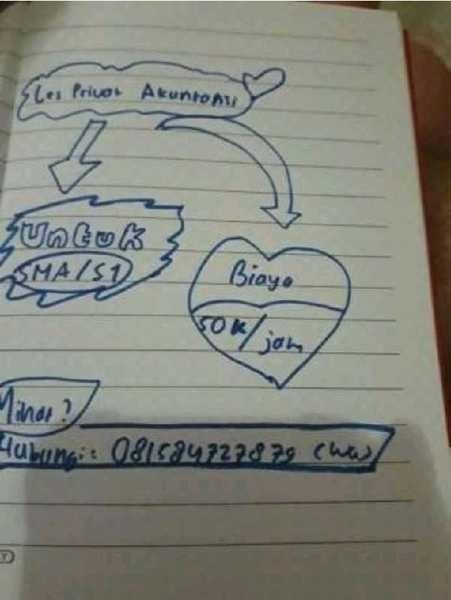 Les Privat Akuntansi
Untuk
SMA/S1
Biaya
50K/jam
Minat?
Hubungi: 081584727879 (WA)